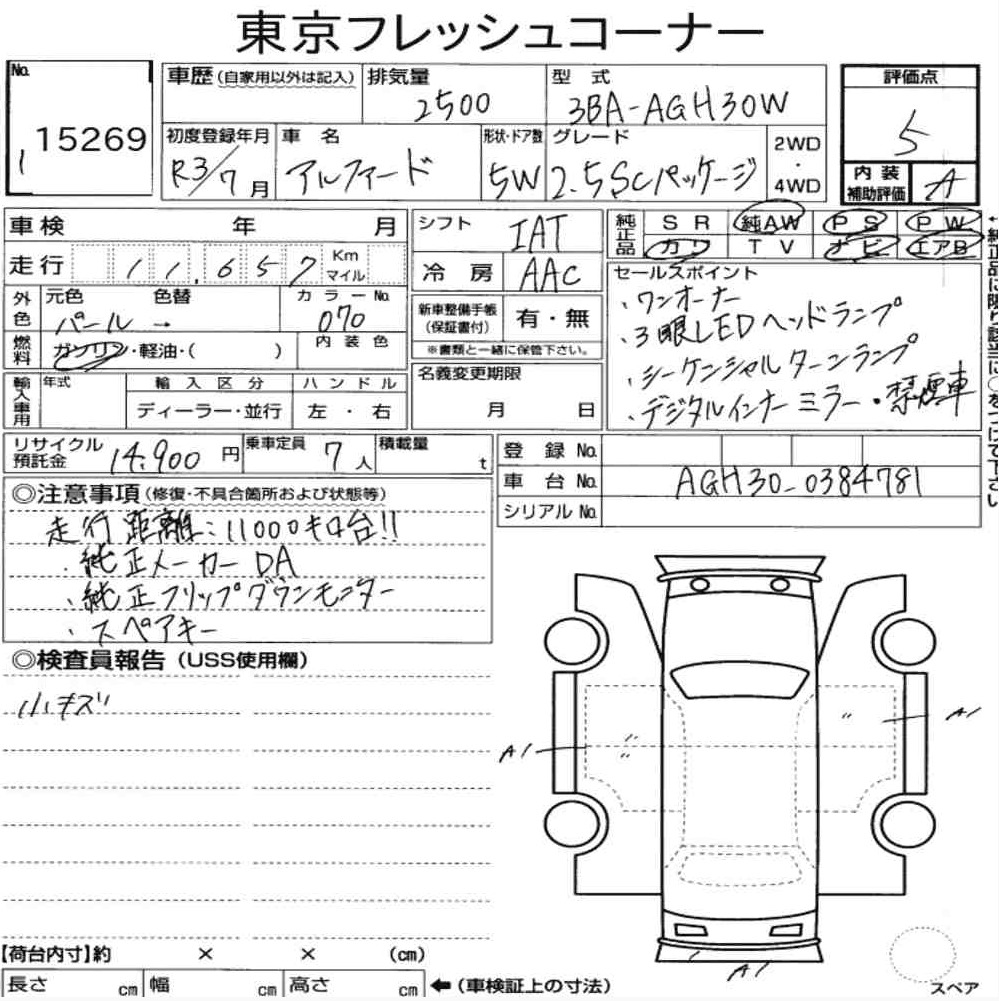 東京フレッシュコーナー
No. 15269
1
車歴(自家用以外は記入)
排気量 2500
型式 3BA-AGH30W
評価点 5
内装補助評価 A
初度登録年月 R3/7月
車名 アルファード
形状・ドア数 5W
グレード 2.5Scパッケージ
2WD・4WD
車検 年 月
走行 11,657 Km マイル
外色 元色 パール → 色替
カラーNo. 070
燃料 ガソリン・軽油・( )
内装色
輸入車用 年式 輸入区分 ディーラー・並行 ハンドル 左・右
シフト IAT
冷房 AAC
新車整備手帳(保証書付) 有・無
※書類と一緒に保管下さい。
名義変更期限 月 日
純正品 SR 純AW PS PW
カワ TV ナビ エアB
←純正品に限り該当に○をつけて下さい
セールスポイント
・ワンオーナー
・3眼LEDヘッドランプ
・シーケンシャルターンランプ
・デジタルインナーミラー・禁煙車
リサイクル預託金 14,900円
乗車定員 7人
積載量 t
登録No.
車台No. AGH30-0384781
シリアルNo.
◎注意事項(修復・不具合箇所および状態等)
走行距離:11000キロ台!!
・純正メーカーDA
・純正フリップダウンモニター
・スペアキー
◎検査員報告(USS使用欄)
小キズ
A1
A1
A1
【荷台内寸】約 × × (cm)
長さ cm 幅 cm 高さ cm ←(車検証上の寸法)
スペア